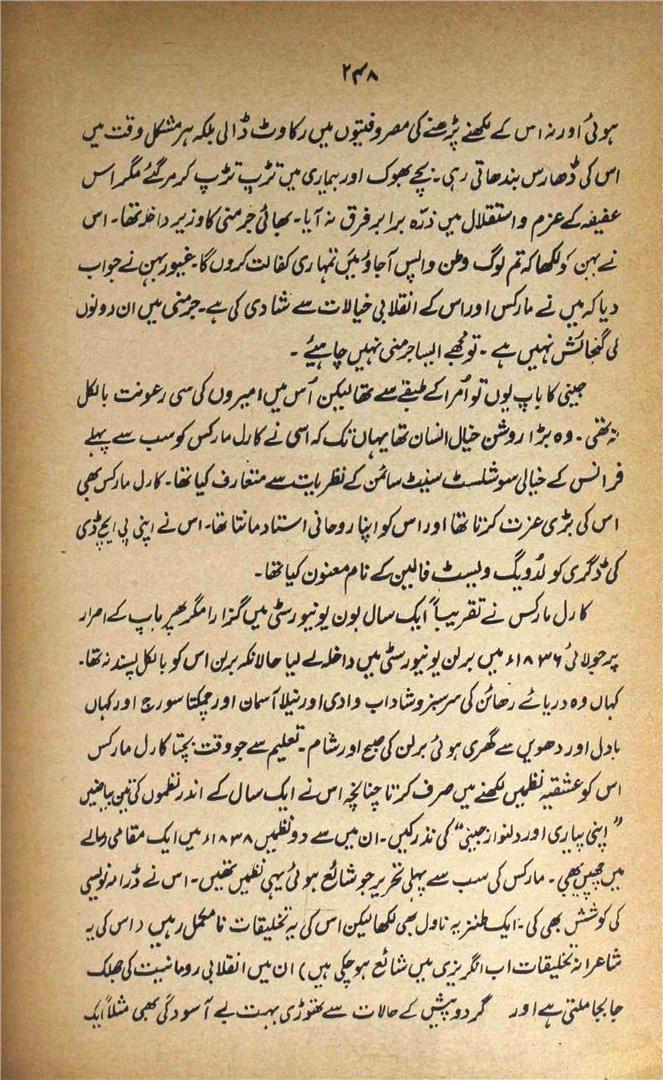 ۲۴۸
ہوئی اور نہ اس کے لکھنے پڑھنے کی مصروفیتوں میں رکاوٹ ڈالی بلکہ ہر مشکل وقت میں
اس کی ڈھارس بندھاتی رہی۔ بچے بھوک اور بیماری میں تڑپ تڑپ کر مر گئے مگر اس
عفیفہ کے عزم و استقلال میں ذرّہ برابر فرق نہ آیا۔ بھائی جرمنی کا وزیر داخلہ تھا۔ اس
نے بہن کو لکھا کہ تم لوگ وطن واپس آجاؤ میں تمہاری کفالت کروں گا۔ غیور بہن نے جواب
دیا کہ میں نے مارکس اور اس کے انقلابی خیالات سے شادی کی ہے۔ جرمنی میں ان دونوں
کی گنجائش نہیں ہے۔ تو مجھے ایسا جرمنی نہیں چاہیئے ۔
جینی کا باپ یوں تو اُمرا کے طبقے سے تھا لیکن اُس میں امیروں کی سی رعونت بالکل
نہ تھی۔ وہ بڑا روشن خیال انسان تھا یہاں تک کہ اسی نے کارل مارکس کو سب سے پہلے
فرانس کے خیالی سوشلسٹ سینٹ سائمن کے نظریات سے متعارف کیا تھا۔ کارل مارکس بھی
اس کی بڑی عزت کرتا تھا اور اس کو اپنا روحانی استاد مانتا تھا۔ اس نے اپنی پی ایچ ڈی
کی ڈگری کو لڈویگ ویسٹ فالین کے نام معنون کیا تھا۔
کارل مارکس نے تقریباً ایک سال بون یونیورسٹی میں گزارا مگر پھر باپ کے اصرار
پر جولائی ۱۸۳۶ء میں برلن یونیورسٹی میں داخلہ لے لیا حالانکہ برلن اس کو بالکل پسند نہ تھا۔
کہاں وہ دریائے رھائن کی سرسبز و شاداب وادی اور نیلا آسمان اور چمکتا سورج اور کہاں
بادل اور دھویں سے گھری ہوئی برلن کی صبح اور شام۔ تعلیم سے جو وقت بچتا کارل مارکس
اس کو عشقیہ نظمیں لکھنے میں صرف کرتا چنانچہ اس نے ایک سال کے اندر نظموں کی تین بیاضیں
”اپنی پیاری اور دلنواز جینی“ کی نذر کیں۔ ان میں سے دو نظمیں ۱۸۳۸ء میں ایک مقامی رسالے
میں چھپیں بھی۔ مارکس کی سب سے پہلی تحریر جو شائع ہوئی یہی نظمیں تھیں۔ اس نے ڈرامہ نویسی
کی کوشش بھی کی۔ ایک طنزیہ ناول بھی لکھا لیکن اس کی یہ تخلیقات نامکمل رہیں (اس کی یہ
شاعرانہ تخلیقات اب انگریزی میں شائع ہو چکی ہیں) ان میں انقلابی رومانیت کی جھلک
جا بجا ملتی ہے اور گردوپیش کے حالات سے تھوڑی بہت بے آسودگی بھی مثلاً ایک